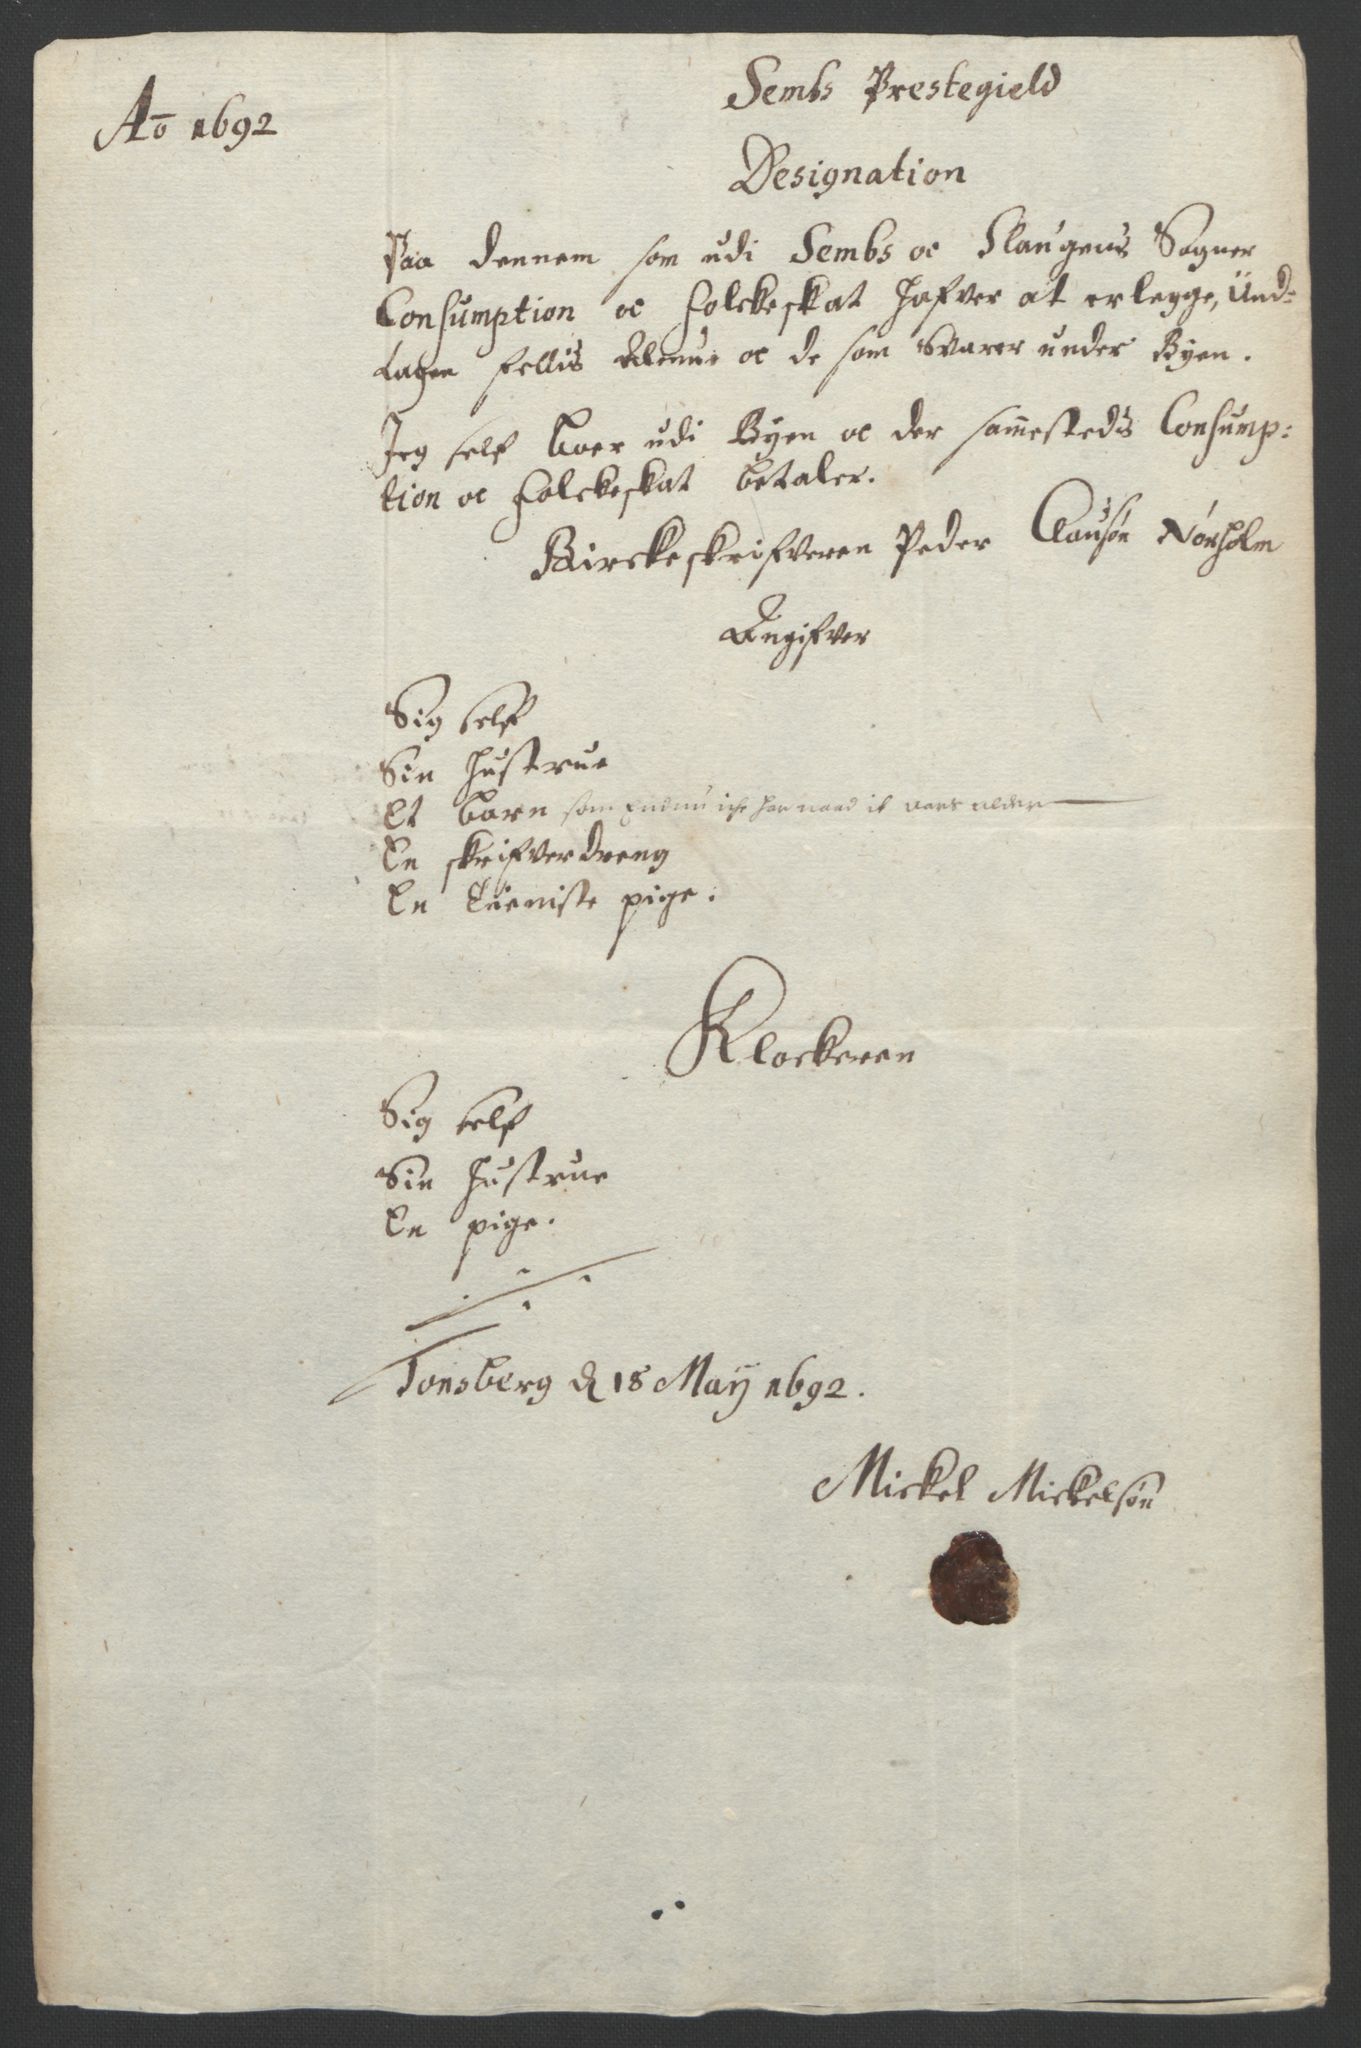 Ao 1692
Sembs Prestegield
Designation
Paa dennem som udi Sembs oc Slaugens Sogner
Consumption oc Folckeskat hafver at erlegge, Und=
tagen fellis Almue oc de som Svarer under Byen.
Jeg self boer udi Byen oc der sammestedis Consump:
tion oc Folckeskat betaler.
Birckeskrifveren Peder Clausøn Nørholm
Angifver
Sig self
Sin Hustrue
Et barn som Endnu iche har naad aars alder
En skrifverdreng
En tieniste pige.
Klockeren
Sig self
Sin Hustrue
En pige.
Tonsberg d 18 Maij 1692.
Mickel Mickelsøn